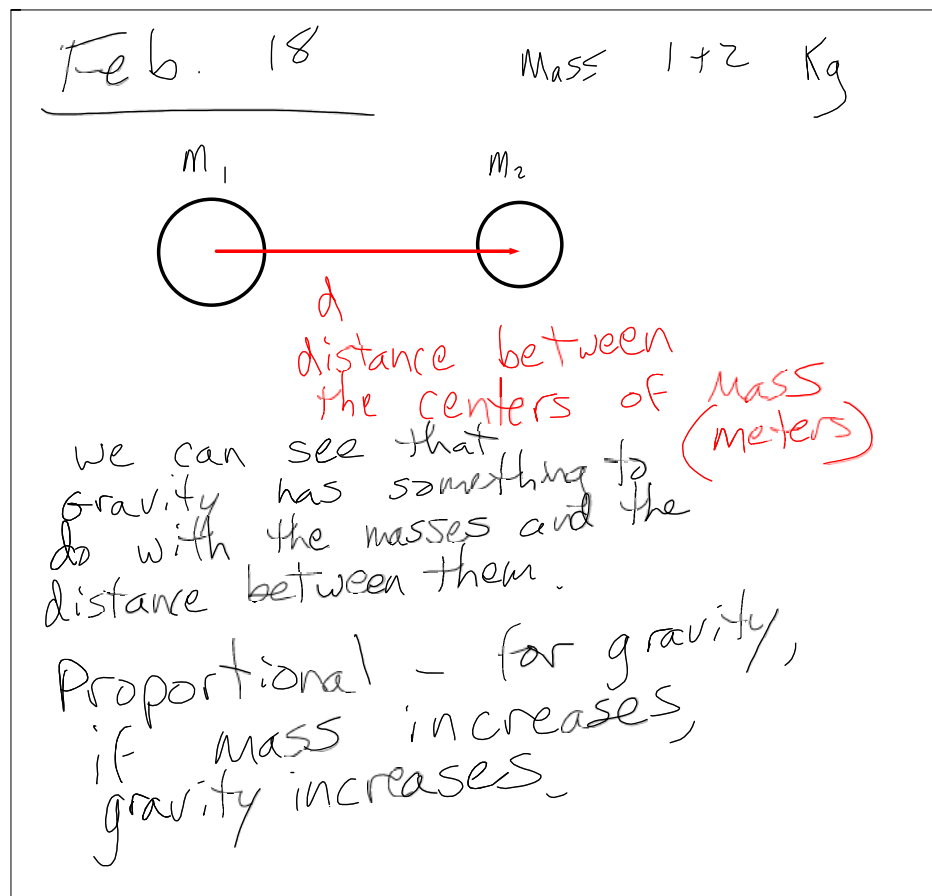 Feb. 18
Mass 1+2 Kg
m1
m2
d
distance between
the centers of mass
(meters)
we can see that
Gravity has something to
do with the masses and the
distance between them.
Proportional - for gravity,
if mass increases,
gravity increases.